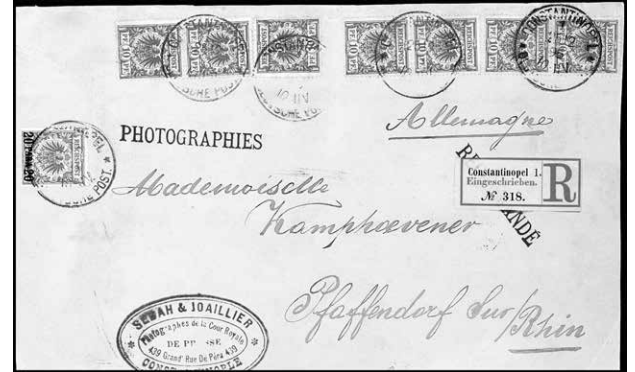 CONSTANTINOPEL 1
DEUTSCHE POST
20 PARA 20
PHOTOGRAPHIES
Allemagne
RECOMMANDÉ
Constantinopel 1.
Eingeschrieben.
№ 318.
R
Mademoiselle
Kamphœvener
Pfaffendorf sur/Rhin
SEBAH & JOAILLIER
Photographes de la Cour Royale
DE PRUSSE
439 Grand' Rue De Péra 439
CONSTANTINOPLE